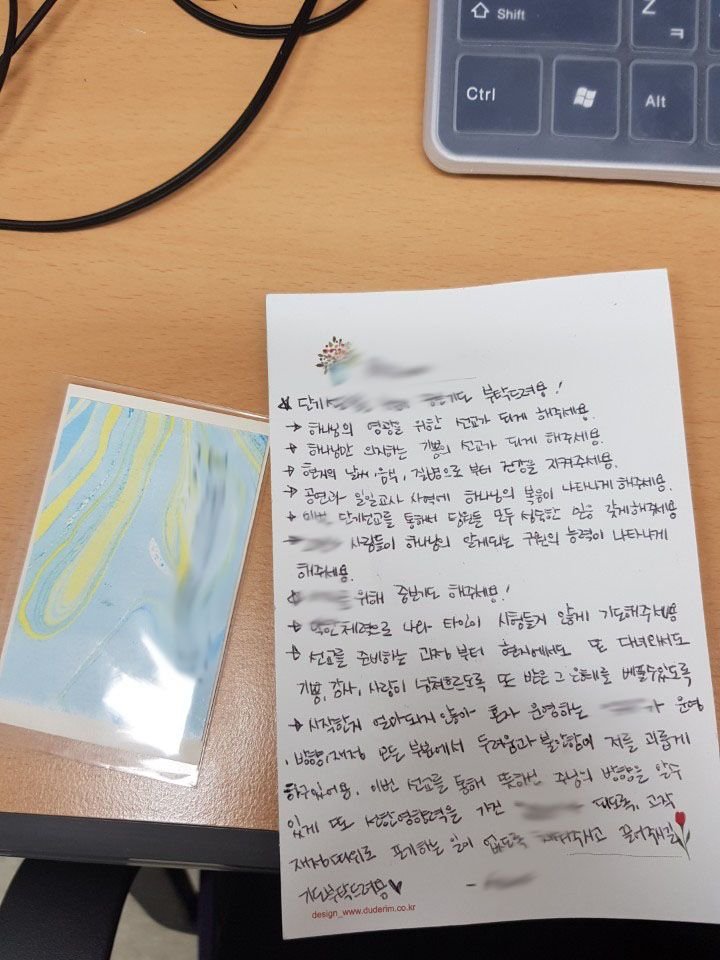 Shift
Z
ㅋ
Ctrl
Alt
☆ 단기 중보기도 부탁드려용!
→ 하나님의 영광을 위한 선교가 되게 해주세용.
→ 하나님만 의지하는 기쁨의 선교가 되게 해주세용.
→ 현지의 날씨, 음식, 질병으로 부터 건강을 지켜주세용.
→ 공연과 일일교사 사역에 하나님의 복음이 나타나게 해주세용.
→ 이번 단기선교를 통해서 당원들 모두 성숙한 믿음 갖게해주세용
→ 사람들이 하나님의 알게되는 구원의 능력이 나타나게
해주세용.
☆ 위해 중보기도 해주세용!
→ 약한 체력으로 나와 타인이 시험들지 않게 기도해주세용
→ 선교를 준비하는 과정부터 현지에서도 또 다녀와서도
기쁨, 감사, 사랑이 넘쳐흐르도록 또 받은 그 은혜를 베풀수있도록
→ 시작한지 얼마되지 않아 혼자 운영하는 가 운영
, 방향, 재정 모든 부분에서 두려움과 불안함이 저를 괴롭게
하구있어용. 이번 선교를 통해 뜻하신 주님의 방향을 알수
있게 또 선한영향력을 가진 되도록, 고작
재정따위로 포기하는 일이 없도록 주시고 끌어주시길
기도부탁드려용♥ -
design_www.duderim.co.kr